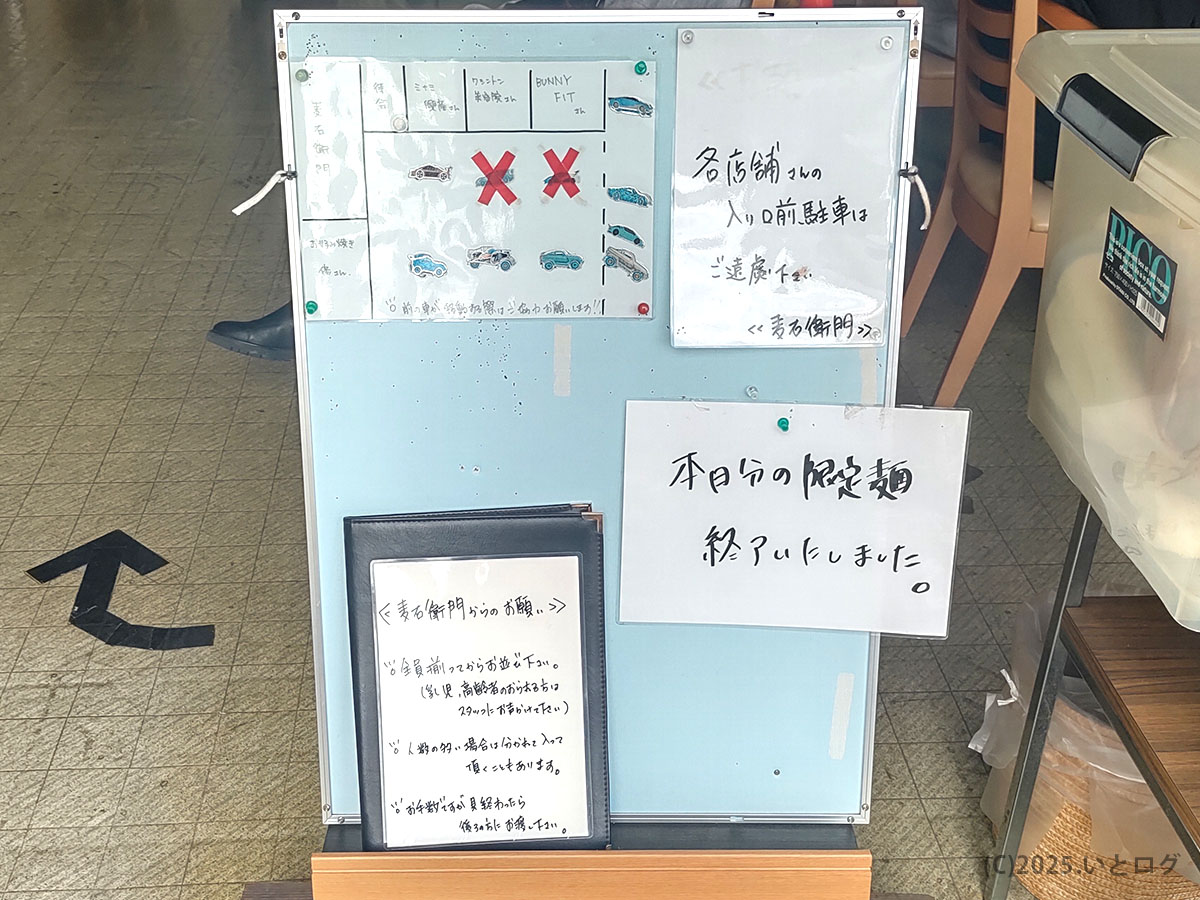 麦石衛門
待合
ミナミ
興産さん
ワシントン
美容院さん
BUNNY
FIT
さん
お好み焼き
偖さん
前の車が移動する際はご協力お願いします!!
各店舗さんの
入り口前駐車は
ご遠慮下さい
<<麦石衛門>>
本日分の限定麺
終了いたしました。
<<麦石衛門からのお願い>>
全員揃ってからお並び下さい。
(乳児、高齢者のおられる方は
スタッフにお声かけ下さい)
人数の多い場合は分かれて入って
頂くこともあります。
お手数ですが見終わったら
後ろの方にお渡し下さい。
PICO
(C)2025.いとログ